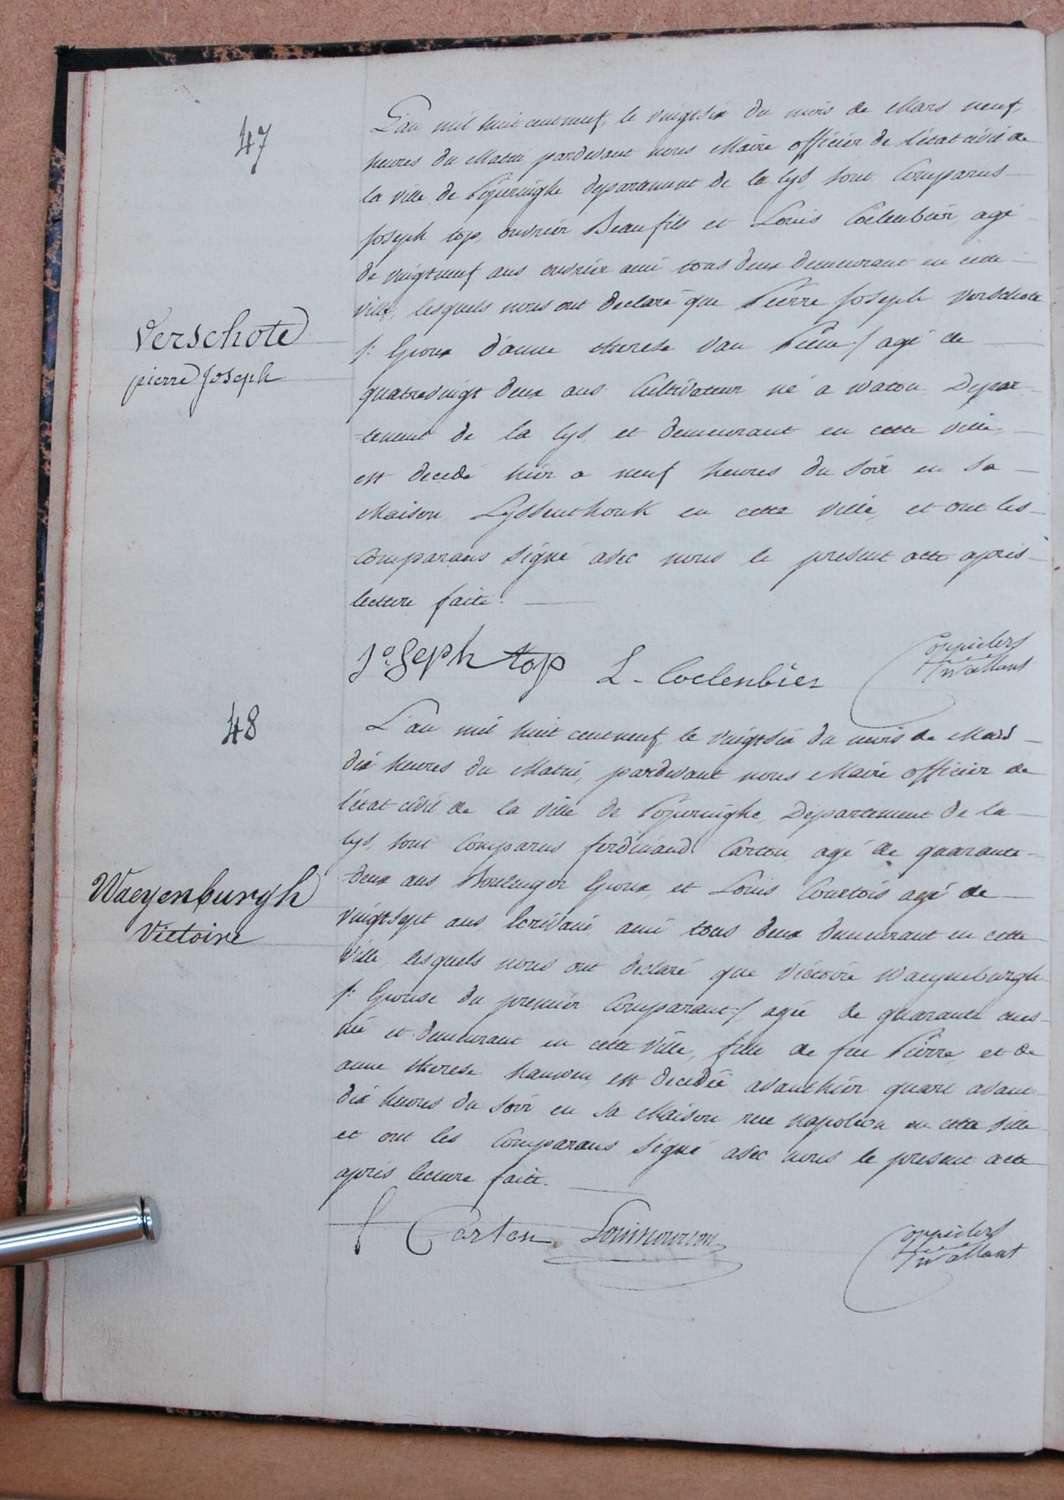 47
L'an mil huit cent neuf, le vingtsix du mois de Mars neuf
heures du Matin pardevant nous Maire officier de l'état civil de
la ville de Poperinghe departement de la Lys sont Comparus
Joseph top, ouvrier Beaufils et Louis Coelenbier agé
de vingtneuf ans ouvrier ami tous deux demeurant en cette
ville, lesquels nous ont declaré que Pierre Joseph Verschote
Verschote
pierre Joseph
/: Epoux d'anne therese Van :/ agé de
quatrevingt deux ans Cultivateur né a watou Depar-
-tement de la Lys et demeurant en cette ville,
est decedé hier a neuf heures du soir en sa
Maison Lyssenthouk en cette ville, et ont les
Comparans signé avec nous le present acte après
lecture faite.
Joseph top L. Coelenbier
48
L'an mil huit cent neuf le vingtsix du mois de Mars
dix heures du Matin, pardevant nous Maire officier de
l'état civil de la ville de Poperinghe, Departement de la
Lys, sont Comparus ferdinand Carton agé de quarante
deux ans Boulanger Epoux, et Louis Courtois agé de
Waeyenburgh
Victoire
vingtsept ans Ecrivain ami tous deux demeurant en cette
Ville lesquels nous ont declaré que Victoire Waeyenburgh
/: Epouse du premier Comparant :/ agée de quarante ans
née et demeurant en cette Ville, fille de feu Pierre, et de
anne therese est decedée avanthier quart avant
dix heures du soir en sa Maison rue Napoléon en cette ville
et ont les Comparans signé avec nous le present acte
après lecture faite.
f Carton Louis Courtois